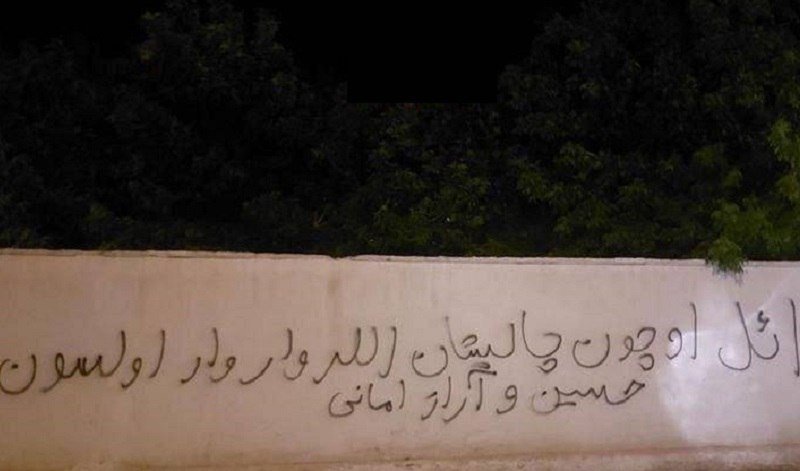 ائل اوچون چالیشان اللر وار وار اولسون
حسین و آراز امانی